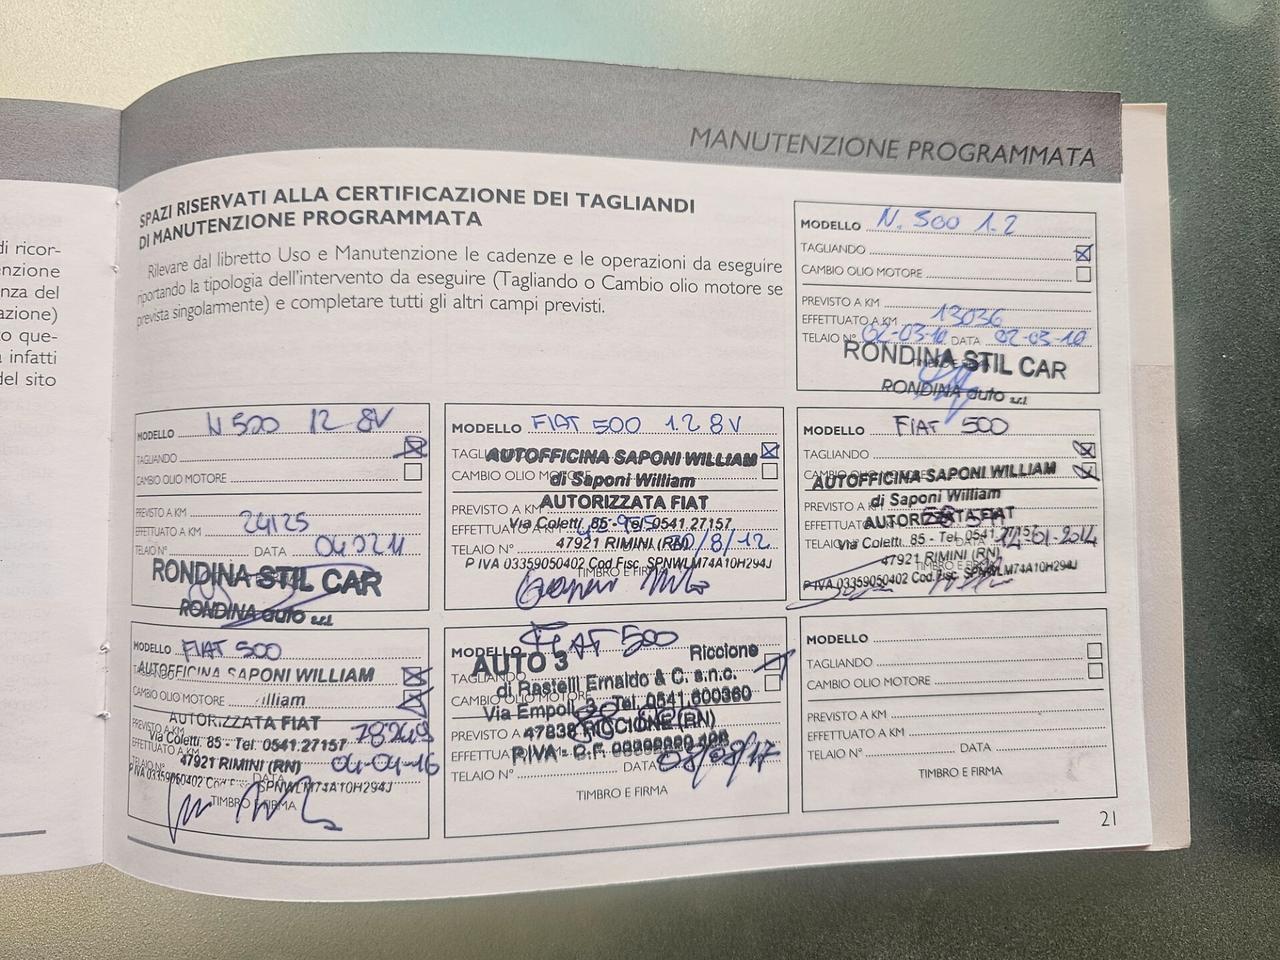 di ricor-
enzione
nza del
azione)
o que-
infatti
del sito
MANUTENZIONE PROGRAMMATA
SPAZI RISERVATI ALLA CERTIFICAZIONE DEI TAGLIANDI
DI MANUTENZIONE PROGRAMMATA
Rilevare dal libretto Uso e Manutenzione le cadenze e le operazioni da eseguire
riportando la tipologia dell'intervento da eseguire (Tagliando o Cambio olio motore se
prevista singolarmente) e completare tutti gli altri campi previsti.
MODELLO N. 500 1.2
TAGLIANDO
CAMBIO OLIO MOTORE
PREVISTO A KM
EFFETTUATO A KM 13036
TELAIO N° 02-03-10 DATA 02-03-10
RONDINA STIL CAR
RONDINA auto s.r.l.
MODELLO N 500 12 8V
TAGLIANDO
CAMBIO OLIO MOTORE
PREVISTO A KM
EFFETTUATO A KM 24125
TELAIO N° DATA 040211
RONDINA STIL CAR
RONDINA auto s.r.l.
MODELLO FIAT 500 1.2 8V
AUTOFFICINA SAPONI WILLIAM
CAMBIO OLIO MOTORE
di Saponi William
AUTORIZZATA FIAT
PREVISTO A KM
EFFETTUATO A KM
Via Coletti, 85 - Tel. 0541 27157
TELAIO N° 30/8/12
47921 RIMINI (RN)
P IVA 03359050402 Cod.Fisc. SPNWLM74A10H294J
TIMBRO E FIRMA
MODELLO FIAT 500
AUTOFFICINA SAPONI WILLIAM
di Saponi William
PREVISTO A KM
AUTORIZZATA FIAT
EFFETTUATO A KM
Via Coletti, 85 - Tel. 0541
TELAIO N° 17-01-2014
47921 RIMINI (RN)
P IVA 03359050402 Cod.Fisc. SPNWLM74A10H294J
MODELLO FIAT 500
AUTOFFICINA SAPONI WILLIAM
CAMBIO OLIO MOTORE
illiam
AUTORIZZATA FIAT
PREVISTO A KM 78249
Via Coletti, 85 - Tel. 0541.27157
EFFETTUATO A KM
47921 RIMINI (RN) 04-04-16
TELAIO N° DATA
P IVA 03359050402 SPNWLM74A10H294J
TIMBRO E FIRMA
MODELLO FIAT 500
AUTO 3 Riccione
TAGLIANDO
di Rastelli Ernaldo & C. s.n.c.
CAMBIO OLIO MOTORE
Via Empoli, 3 - Tel. 0541.600360
PREVISTO A KM
47838 RICCIONE (RN)
EFFETTUATO
P.IVA - C.F.
TELAIO N° DATA 08/08/17
TIMBRO E FIRMA
MODELLO
TAGLIANDO
CAMBIO OLIO MOTORE
PREVISTO A KM
EFFETTUATO A KM
TELAIO N° DATA
TIMBRO E FIRMA
21